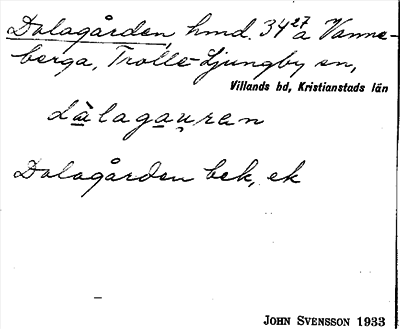 Dalagården, hmd. 34²⁷ a Vanne-
berga, Trolle-Ljungby sn,
Villands hd, Kristianstads län
dàlagau̯ran
Dalagården bek, ek
JOHN SVENSSON 1933